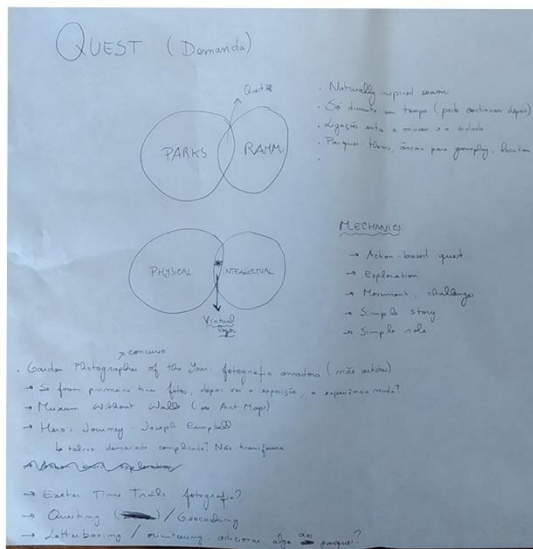 QUEST (Demanda)
Quest *
PARKS
RAMM
· Naturally inspired season
· Só durante um tempo (pode continuar depois)
· Ligação entre o museu e a cidade
· Parques: themes, áreas para gameplay,
PHYSICAL
*
INTELLECTUAL
Virtual
MECHANICS
→ Action-based quest
→ Exploration
→ Movement, challenges
→ Simple story
→ Simple role
↗ concurso
· Garden Photographer of the Year: fotografia amadora (não artistas)
→ Se forem primeiro tirar fotos, depois ver a exposição, a experiência muda?
→ Museum Without Walls (ver Art Map)
→ Hero's Journey - Joseph Campbell
↳ talvez demasiado complicado? Não transforma
→ Exeter Time Trails: fotografia?
→ Questing / Geocaching
→ Letterboxing / orienteering: adicionar algo ao parque?